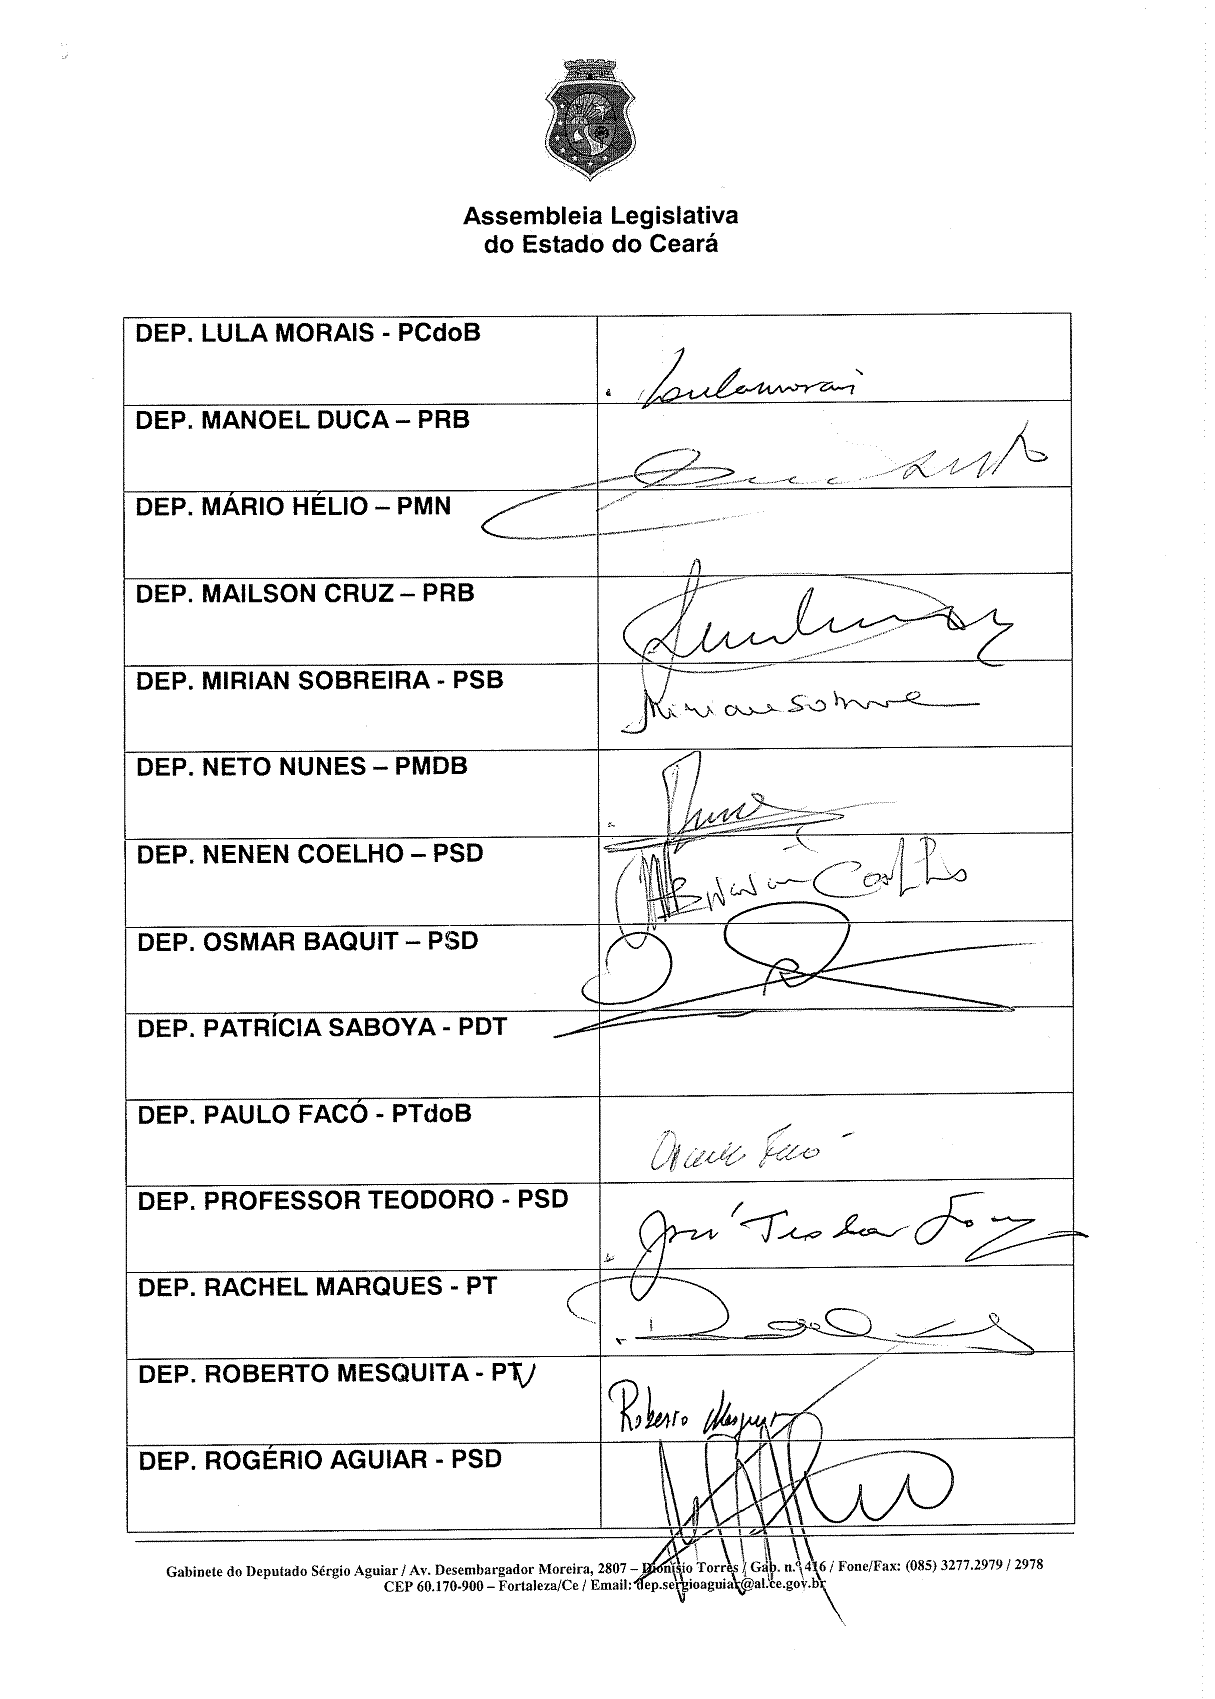 Assembleia Legislativa
do Estado do Ceará
DEP. LULA MORAIS - PCdoB
Lulamorais
DEP. MANOEL DUCA – PRB
DEP. MÁRIO HÉLIO – PMN
DEP. MAILSON CRUZ – PRB
DEP. MIRIAN SOBREIRA - PSB
DEP. NETO NUNES – PMDB
DEP. NENEN COELHO – PSD
Coelho
DEP. OSMAR BAQUIT – PSD
DEP. PATRÍCIA SABOYA - PDT
DEP. PAULO FACÓ - PTdoB
Facó
DEP. PROFESSOR TEODORO - PSD
José Teodoro
DEP. RACHEL MARQUES - PT
DEP. ROBERTO MESQUITA - PV
Roberto Mesquita
DEP. ROGÉRIO AGUIAR - PSD
Gabinete do Deputado Sérgio Aguiar / Av. Desembargador Moreira, 2807 – Dionísio Torres / Gab. n.º 416 / Fone/Fax: (085) 3277.2979 / 2978
CEP 60.170-900 – Fortaleza/Ce / Email: dep.sergioaguiar@al.ce.gov.br